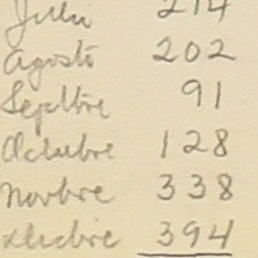 Julio 214
Agosto 202
Septbre 91
Octubre 128
Novbre 338
Dicbre 394